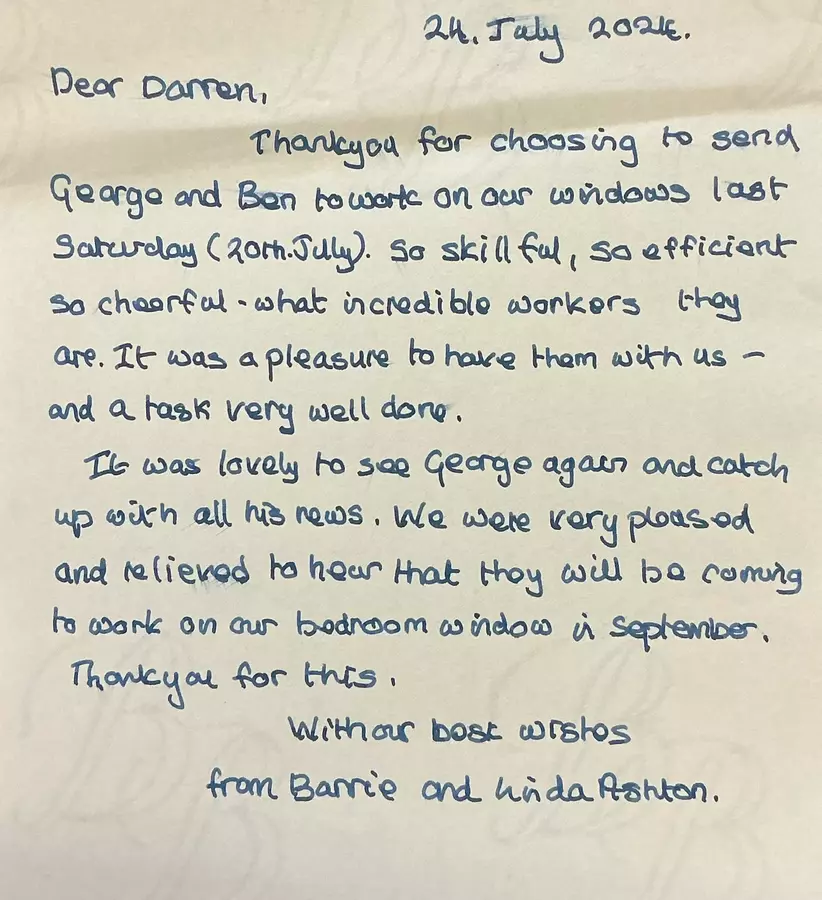 24. July 2024.
Dear Darren,
Thankyou for choosing to send
George and Ben to work on our windows last
Saturday (20th. July). So skillful, so efficient
so cheerful - what incredible workers they
are. It was a pleasure to have them with us -
and a task very well done.
It was lovely to see George again and catch
up with all his news. We were very pleased
and relieved to hear that they will be coming
to work on our bedroom window in September.
Thankyou for this.
With our best wishes
from Barrie and Linda Ashton.